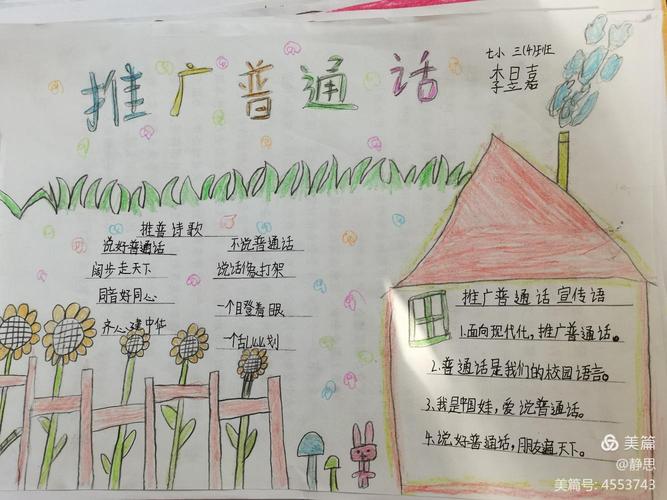 推广普通话
七小 三(4)班
李昱嘉
推普诗歌
说好普通话
阔步走天下
同音好同心
齐心建中华
不说普通话
说话像打架
一个目登着眼
一个乱比划
推广普通话宣传语
1.面向现代化,推广普通话。
2.普通话是我们的校园语言。
3.我是中国娃,爱说普通话。
4.说好普通话,朋友遍天下。
美篇
@静思
美篇号: 4553743